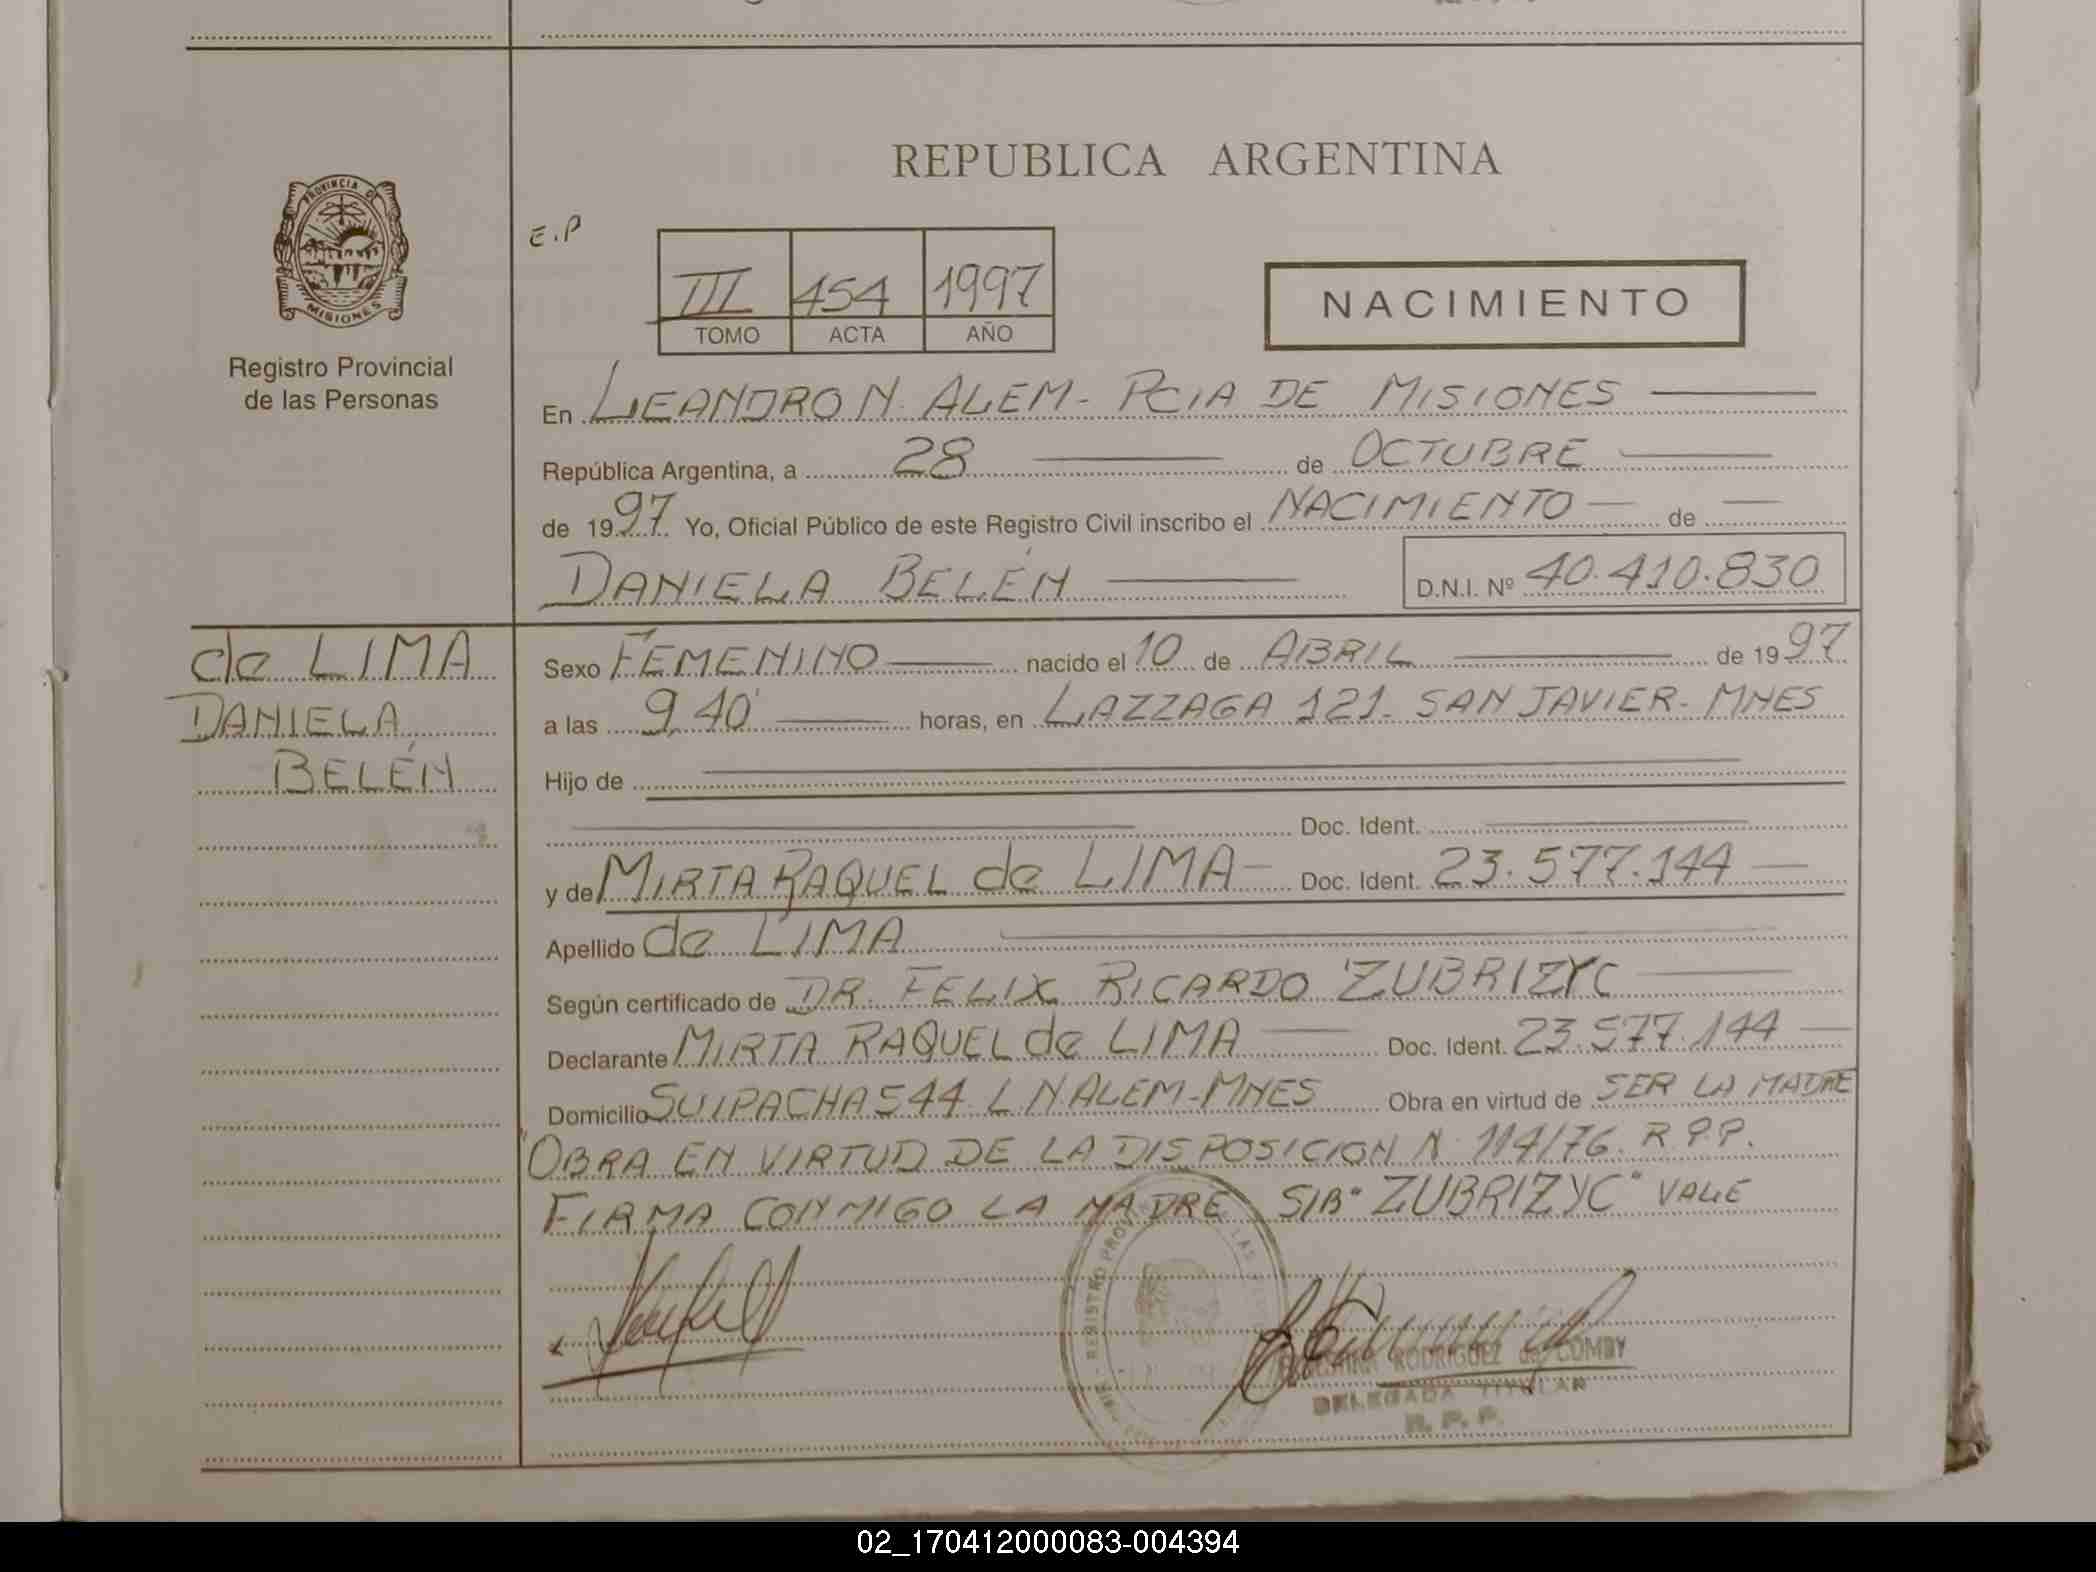 REPUBLICA ARGENTINA
PROVINCIA DE
MISIONES
Registro Provincial
de las Personas
E.P
III 454 1997
TOMO ACTA AÑO
NACIMIENTO
En LEANDRO N. ALEM - PCIA DE MISIONES
República Argentina, a 28 de OCTUBRE
de 1997 Yo, Oficial Público de este Registro Civil inscribo el NACIMIENTO de
DANIELA BELÉN D.N.I. Nº 40.410.830
de LIMA
DANIELA
BELÉN
Sexo FEMENINO nacido el 10 de ABRIL de 1997
a las 9,40' horas, en LAZZAGA 121 - SAN JAVIER - MNES
Hijo de
Doc. Ident.
y de MIRTA RAQUEL de LIMA - Doc. Ident. 23.577.144
Apellido de LIMA
Según certificado de DR. FELIX RICARDO ZUBRIZYC
Declarante MIRTA RAQUEL de LIMA Doc. Ident. 23.577.144
Domicilio SUIPACHA 544 L N ALEM - MNES Obra en virtud de SER LA MADRE
"OBRA EN VIRTUD DE LA DISPOSICION N 114/76. R.P.P.
FIRMA CONMIGO LA MADRE S/B "ZUBRIZYC" VALE
REGISTRO PROVIN DE LAS
RODRIGUEZ de COMBY
DELEGADA TITULAR
R. P. P.
02_170412000083-004394